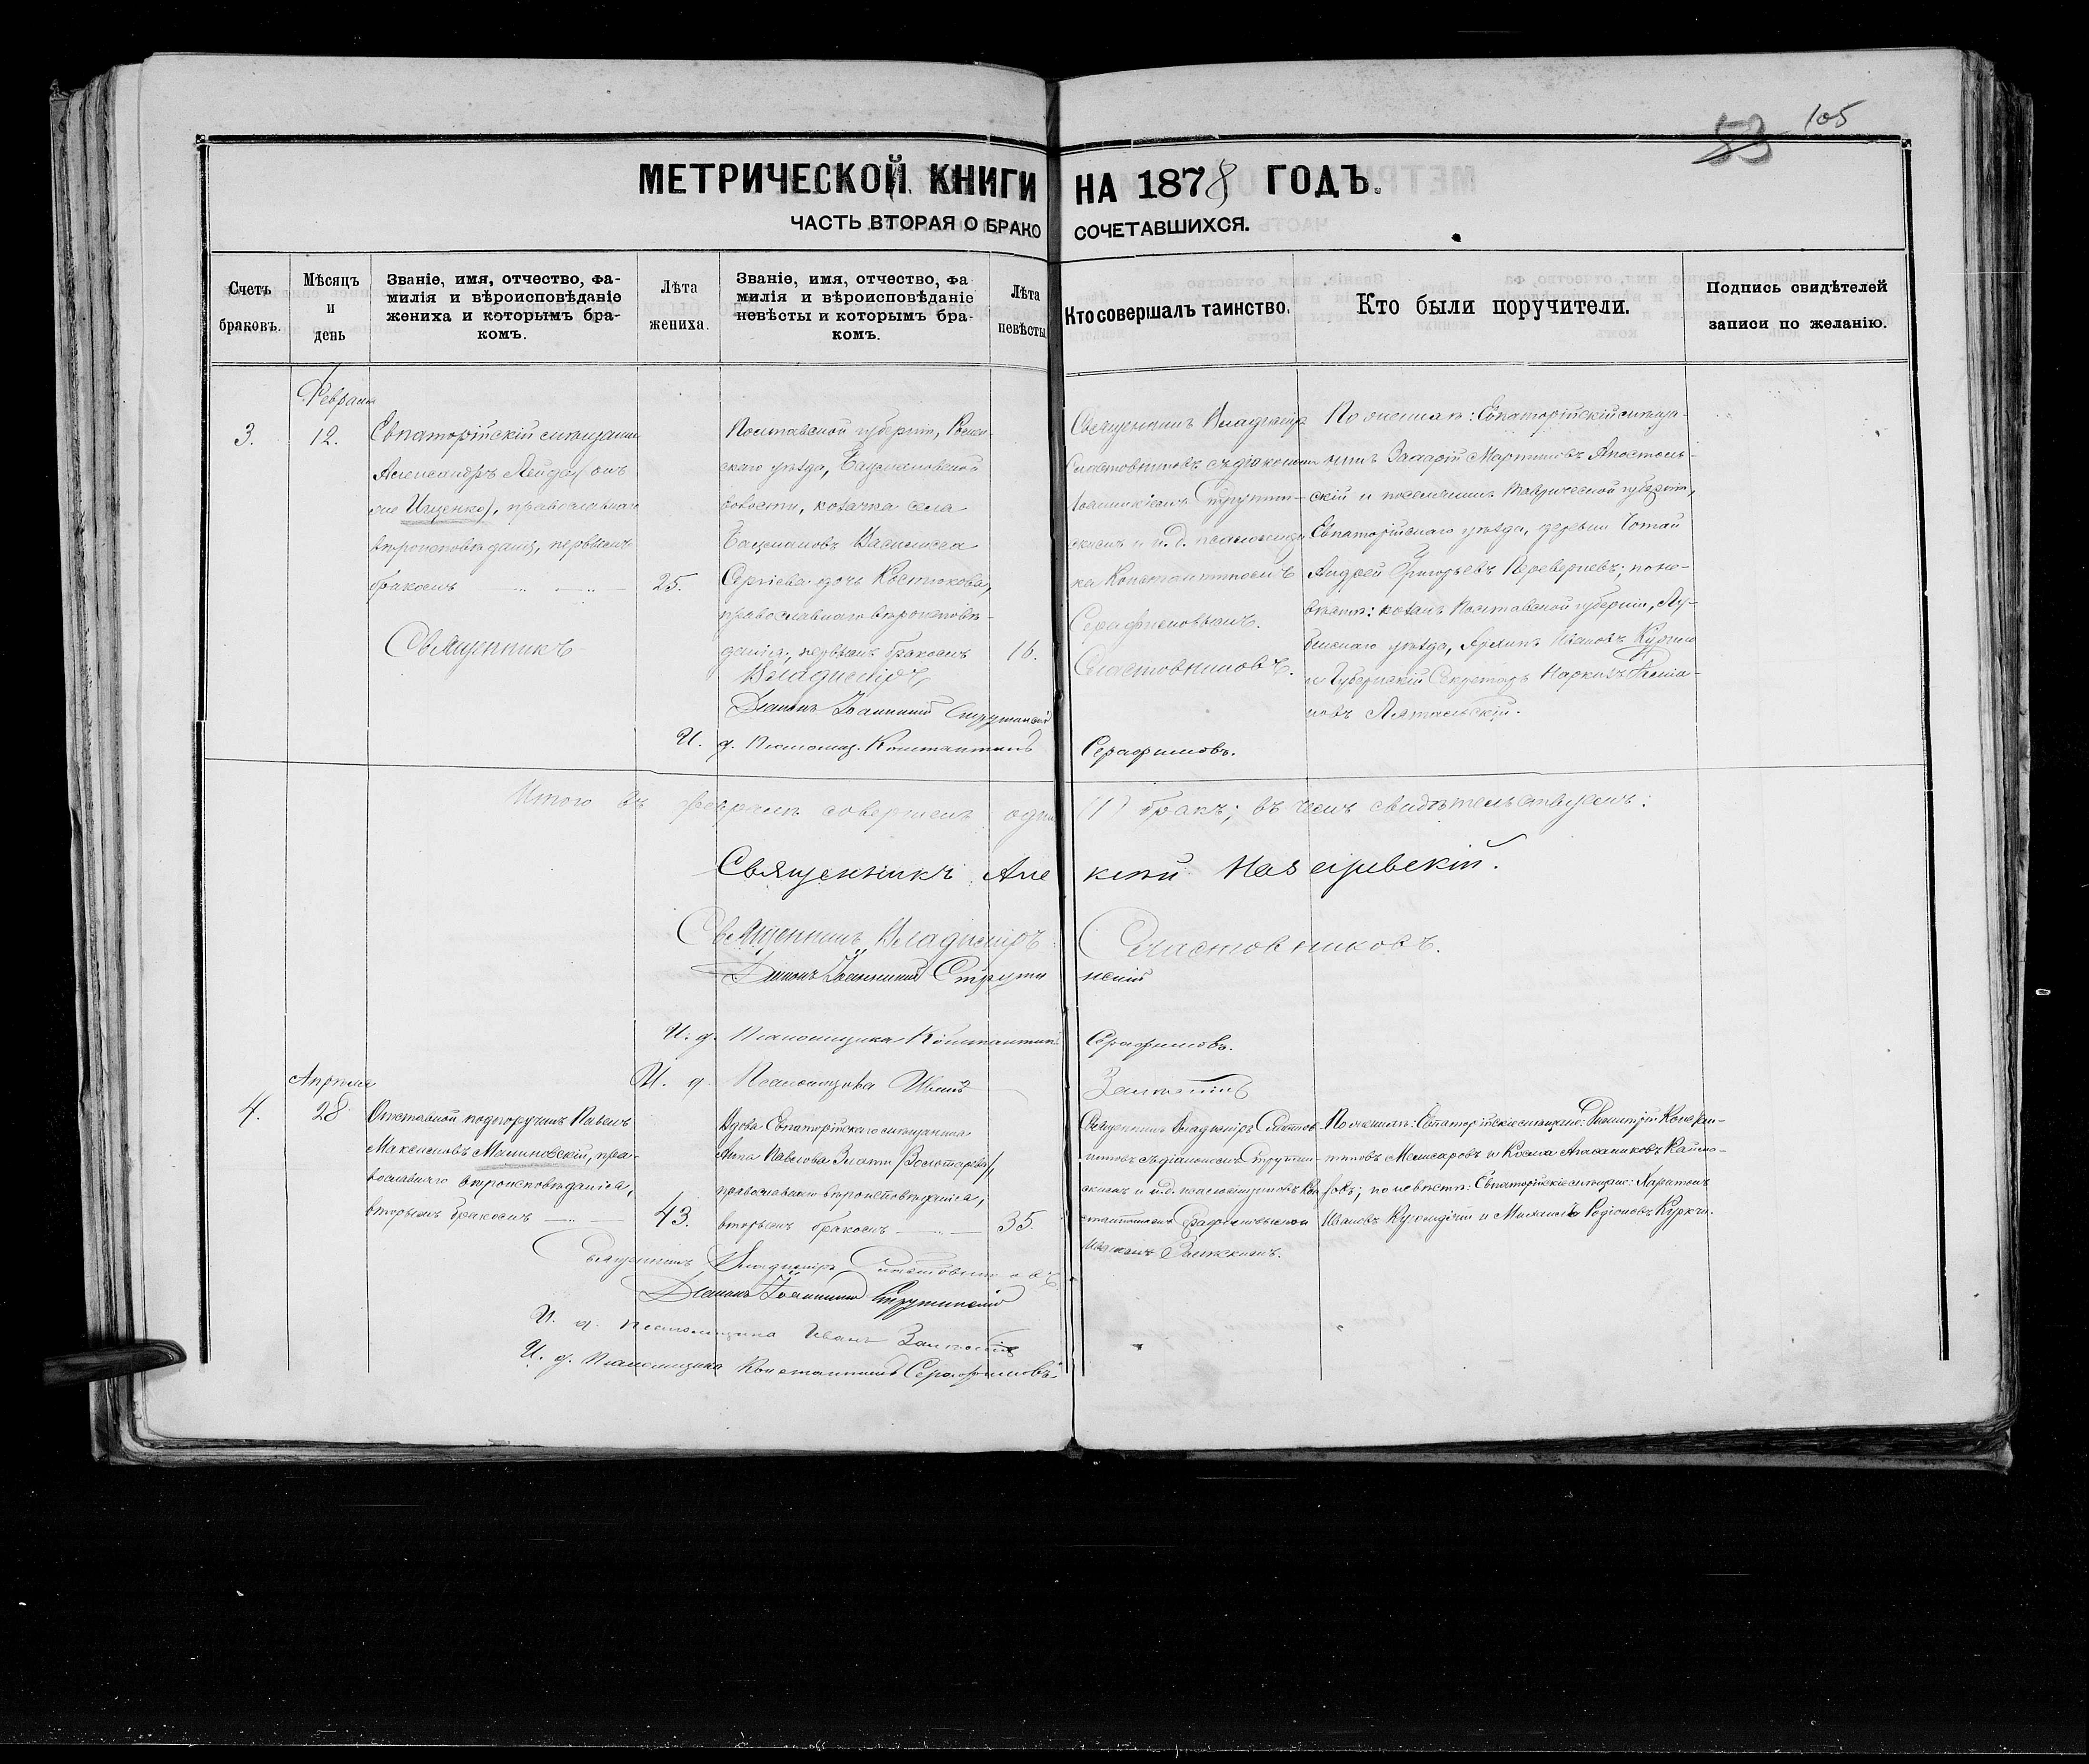 53 105
МЕТРИЧЕСКОЙ КНИГИ НА 1878 ГОДЪ.
ЧАСТЬ ВТОРАЯ О БРАКОСОЧЕТАВШИХСЯ.
Счетъ браковъ.
Мѣсяцъ и день
Званіе, имя, отчество, фа-
милія и вѣроисповѣданіе
жениха и которымъ бра-
комъ.
Лѣта жениха.
Званіе, имя, отчество, фа
милія и вѣроисповѣданіе
невѣсты и которымъ бра-
комъ.
Лѣта невѣсты
Кто совершалъ таинство.
Кто были поручители.
Подпись свидѣтелей
записи по желанію.
Февраля
3.
12.
Евпаторійскій мѣщанинъ
Александръ
же Ищенко), православнаго
вѣроисповѣданія, первымъ
бракомъ
25.
Полтавской губерніи,
скаго уѣзда,
волости, козачка села
Василисса
Сергіева дочь Костюкова,
православнаго вѣроисповѣ-
данія, первымъ бракомъ
16.
Священникъ Владиміръ
Сластовниковъ съ діакономъ
Іоанникіемъ Струтин-
скимъ и и.д. псаломщи
ка Константиномъ
Серафимовымъ.
По женихѣ: Евпаторійскій мѣща-
нинъ Захарій Мартиновъ Апостоль-
скій и поселянинъ Таврической губерніи,
Евпаторійскаго уѣзда, деревни
Андрей Григорьевъ; по не-
вѣстѣ: козакъ Полтавской губерніи, Лу-
бенскаго уѣзда, Иванъ
и Губернскій Секретарь
Священникъ Владиміръ Сластовниковъ.
Діаконъ Іоанникій Струтинскій
И. д. Псаломщ. Константинъ Серафимовъ.
Итого въ февралѣ совершенъ одинъ (1) бракъ; въ чемъ свидѣтельствуемъ:
Священникъ Алексѣй
Священникъ Владиміръ Сластовниковъ.
Діаконъ Іоанникій Струтинскій
И. д. Псаломщика Константинъ Серафимовъ.
И. д. Псаломщика Иванъ
Апрѣля
4.
28
Отставной подпоручикъ Павелъ
Максимовъ Малиновскій, пра-
вославнаго вѣроисповѣданія,
вторымъ бракомъ
43.
Вдова Евпаторійскаго мѣщанина
Анна Павлова
православнаго вѣроисповѣданія,
вторымъ бракомъ
35.
Священникъ Владиміръ Сластов-
никовъ съ діакономъ Струтин-
скимъ и и.д. псаломщиковъ Кон
стантиномъ Серафимовымъ и
По женихѣ: Евпаторійскіе мѣщане: Димитрій Констан-
тиновъ и Козма
по невѣстѣ: Евпаторійскіе мѣщане: Харитонъ
Ивановъ и Михаилъ Родіоновъ
Священникъ Владиміръ Сластовниковъ
Діаконъ Іоанникій Струтинскій
И. д. псаломщика Иванъ
И. д. Псаломщика Константинъ Серафимовъ.